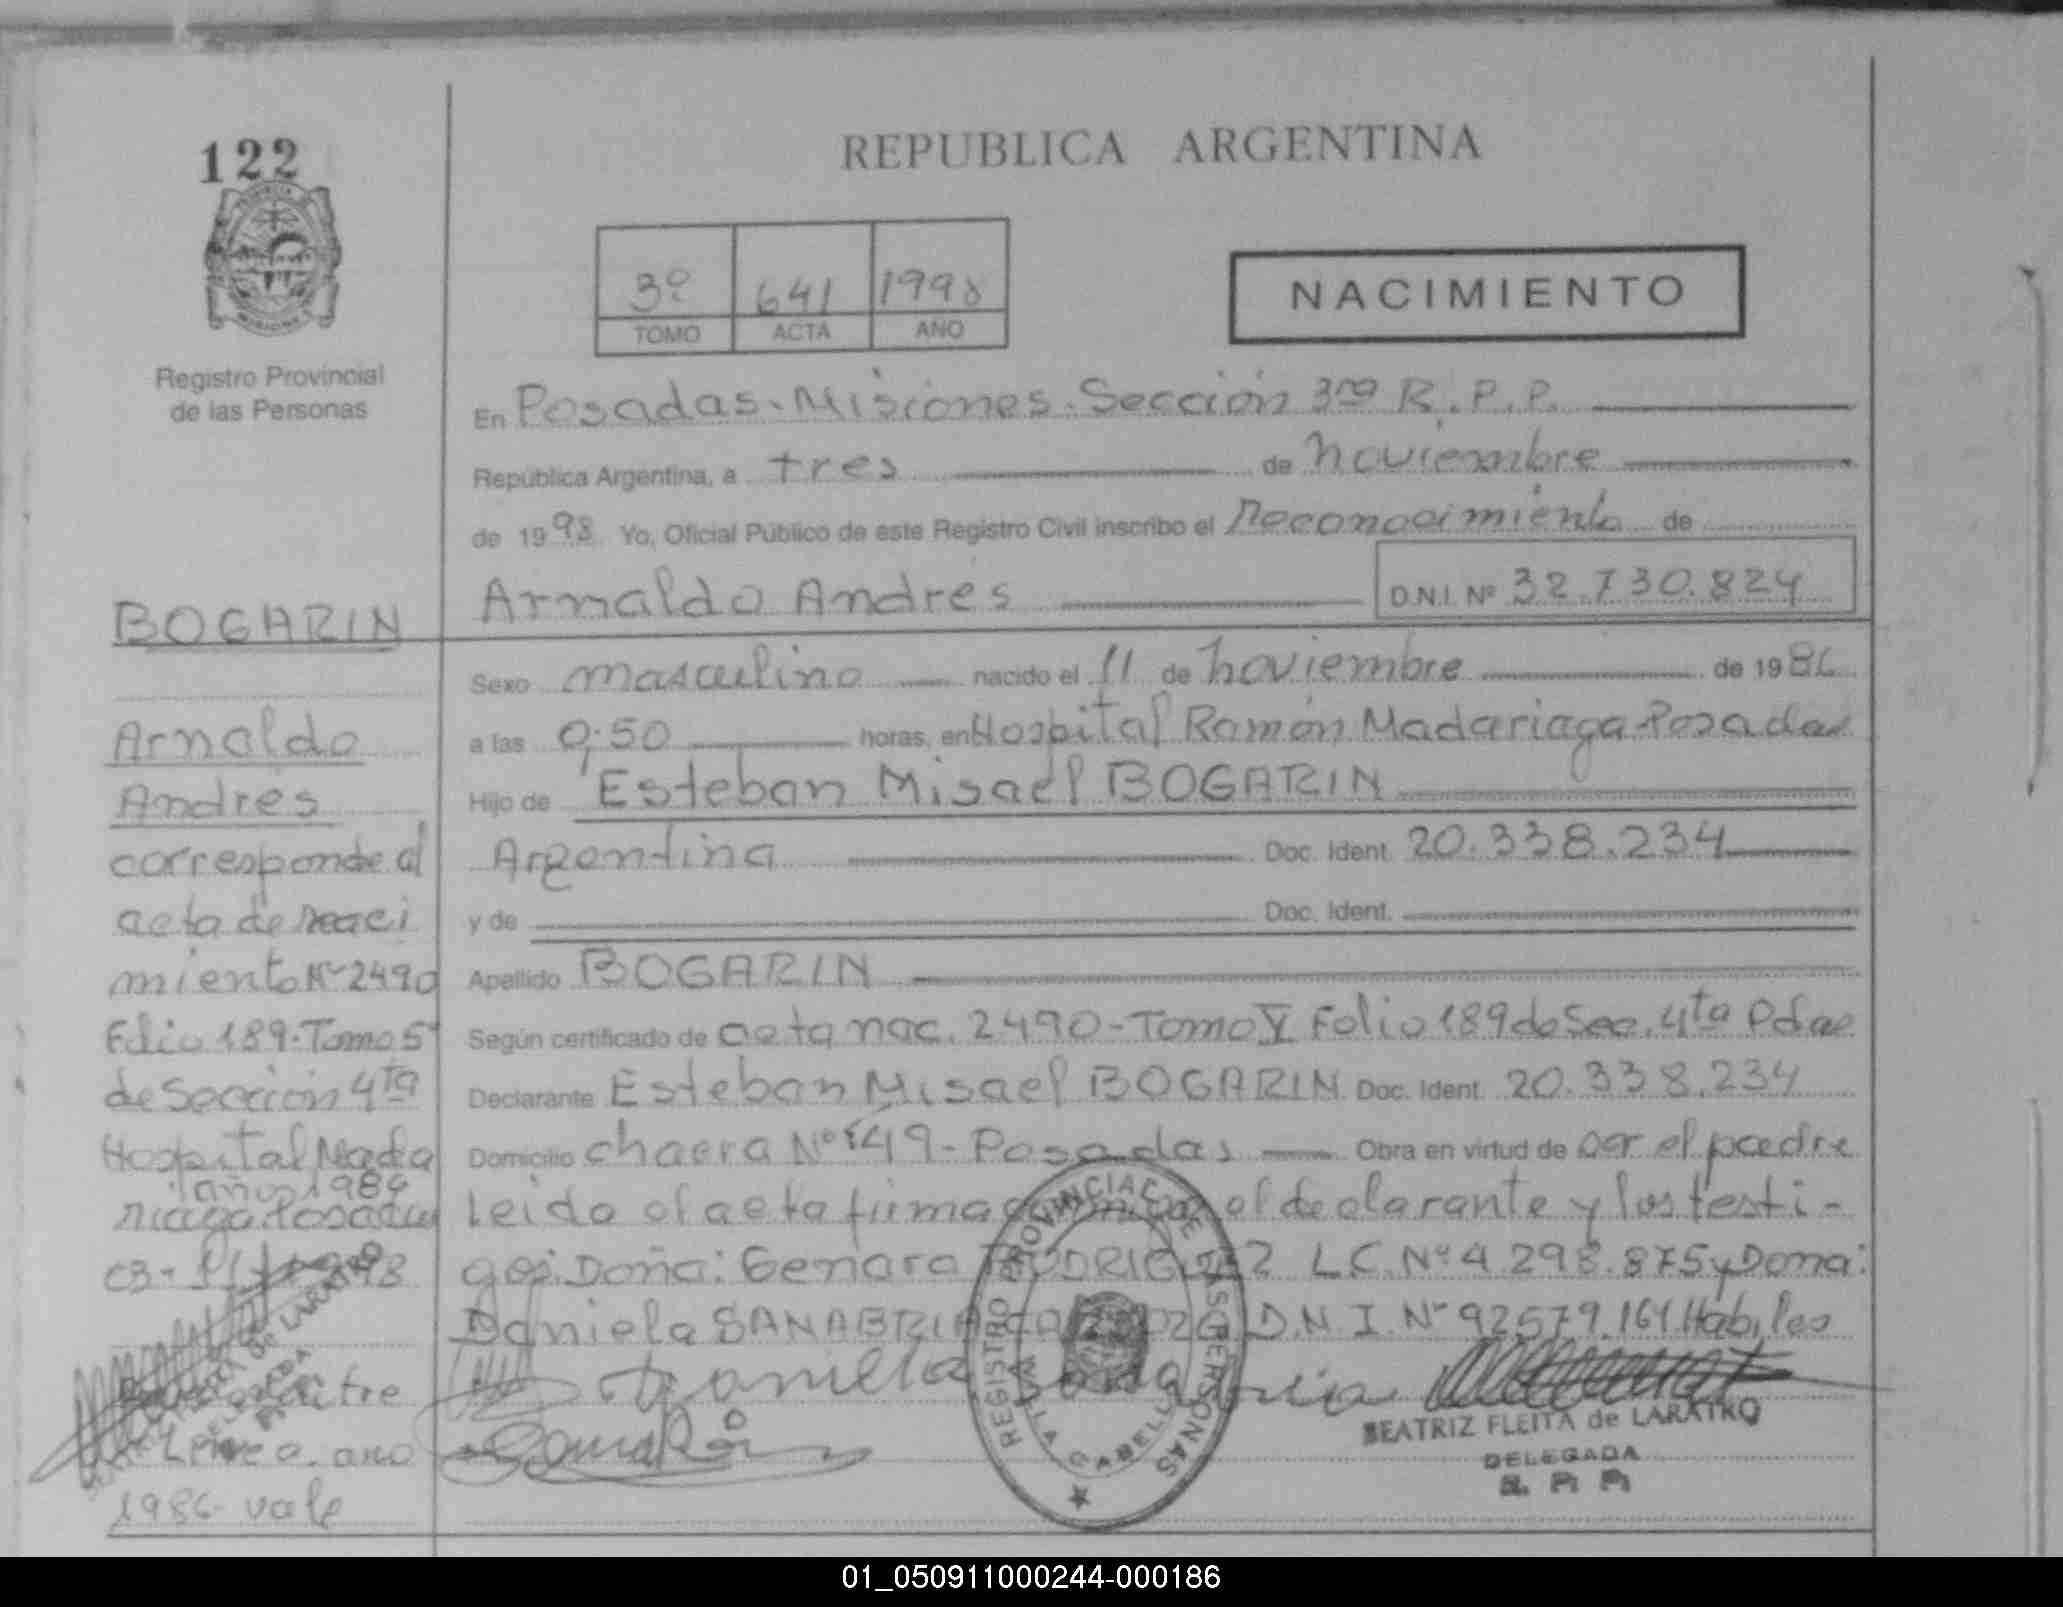 122
REPUBLICA ARGENTINA
3º 641 1998
TOMO ACTA AÑO
NACIMIENTO
Registro Provincial
de las Personas
En Posadas - Misiones - Sección 3ra R.P.P.
República Argentina, a tres de noviembre
de 1998 Yo, Oficial Público de este Registro Civil inscribo el Reconocimiento de
Arnaldo Andrés D.N.I. Nº 32.730.824
Sexo masculino nacido el 11 de noviembre de 1986
a las 0,50 horas, en Hospital Ramón Madariaga-Posadas
Hijo de Esteban Misael BOGARIN
Argentina Doc. Ident. 20.338.234
y de Doc. Ident.
Apellido BOGARIN
Según certificado de acta nac. 2490-Tomo V Folio 189 de Sec. 4ta Pdas
Declarante Esteban Misael BOGARIN Doc. Ident. 20.338.234
Domicilio chacra Nº 149 - Posadas Obra en virtud de ser el padre
leida el acta firma el declarante y los testi-
gos: Doña: Genara RODRIGUEZ L.C. Nº 4.298.875 y Doña:
Daniela SANABRIA D.N.I. Nº 92579.161 Habiles
BEATRIZ FLEITA de LARATRO
DELEGADA
R. P. P.
REGISTRO PROVINCIAL DE LAS PERSONAS
VILLA CABELLO
BOGARIN
Arnaldo
Andrés
corresponde al
acta de naci
miento Nº 2490
Folio 189-Tomo 5º
de Sección 4ta
Hospital Mada
año 1986
riaga Posadas
03-11-1998
Entre
Linea. ano
1986 vale
01_050911000244-000186